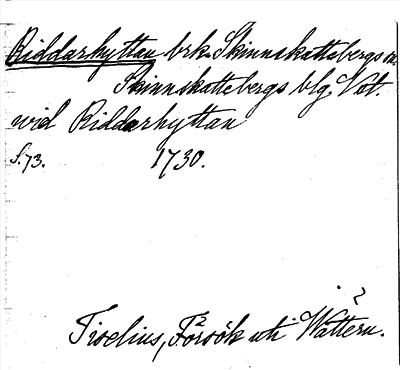 Riddarhyttan brk. Skinnskattebergs sn.
Skinnskattebergs blg. Vstm.
wid Riddarhyttan
s. 73. 1730.
2
Tiselius, Försök uti Wättern.